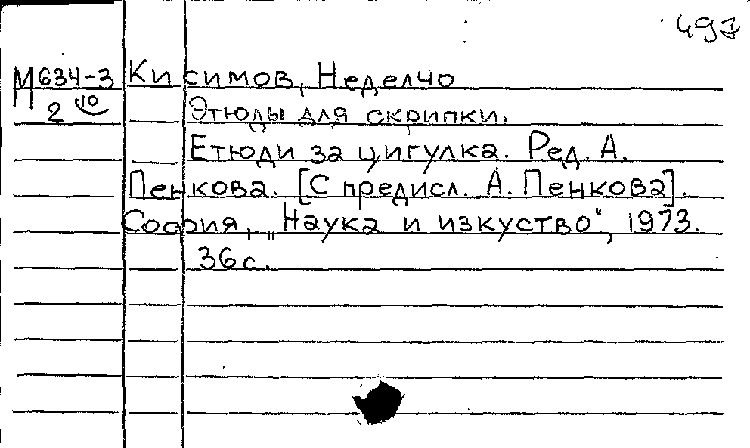 497
М634-3 Кисимов, Неделчо
2 10 Этюды для скрипки.
Етюди за цигулка. Ред. А.
Пенкова. [С предисл. А. Пенкова].
София, „Наука и изкуство“, 1973.
36 с.